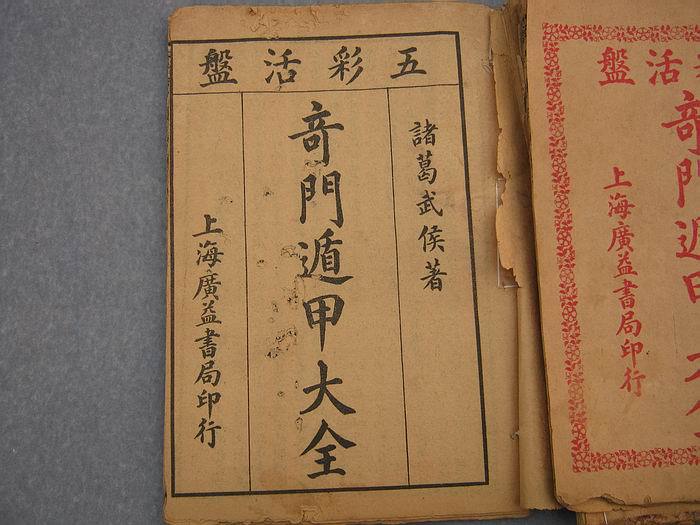 五彩活盤
諸葛武侯著
奇門遁甲大全
上海廣益書局印行
活盤
奇門遁甲大全
上海廣益書局印行